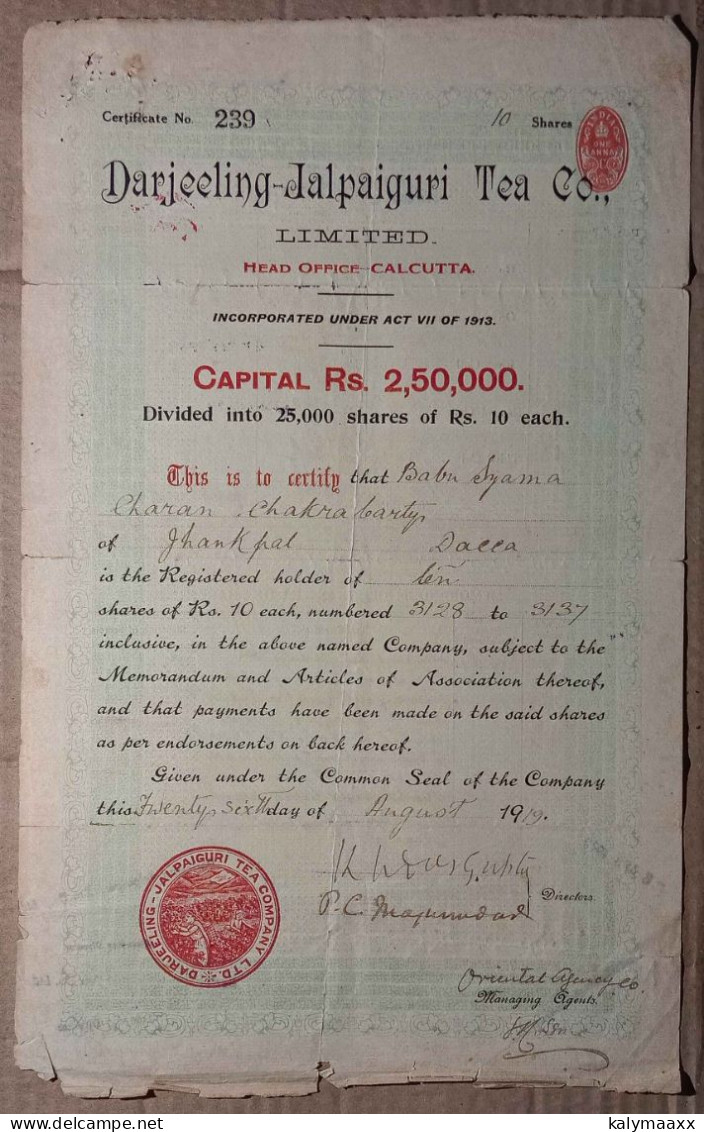 Certificate No. 239 10 Shares
INDIA
ONE
ANNA
Darjeeling-Jalpaiguri Tea Co.,
LIMITED.
HEAD OFFICE CALCUTTA.
INCORPORATED UNDER ACT VII OF 1913.
CAPITAL RS. 2,50,000.
Divided into 25,000 shares of Rs. 10 each.
This is to certify that Babu Syama
Charan Chakrabarty,
of Dacca
is the Registered holder of ten
shares of Rs. 10 each, numbered 3128 to 3137
inclusive, in the above named Company, subject to the
Memorandum and Articles of Association thereof,
and that payments have been made on the said shares
as per endorsements on back hereof.
Given under the Common Seal of the Company
this Twenty sixth day of August 1919.
DARJEELING - JALPAIGURI TEA COMPANY LTD.
Gupta
P.C. Majumdar
Directors.
Oriental Agency Co.
Managing Agents.
Delcampe.net
kalymaaxx